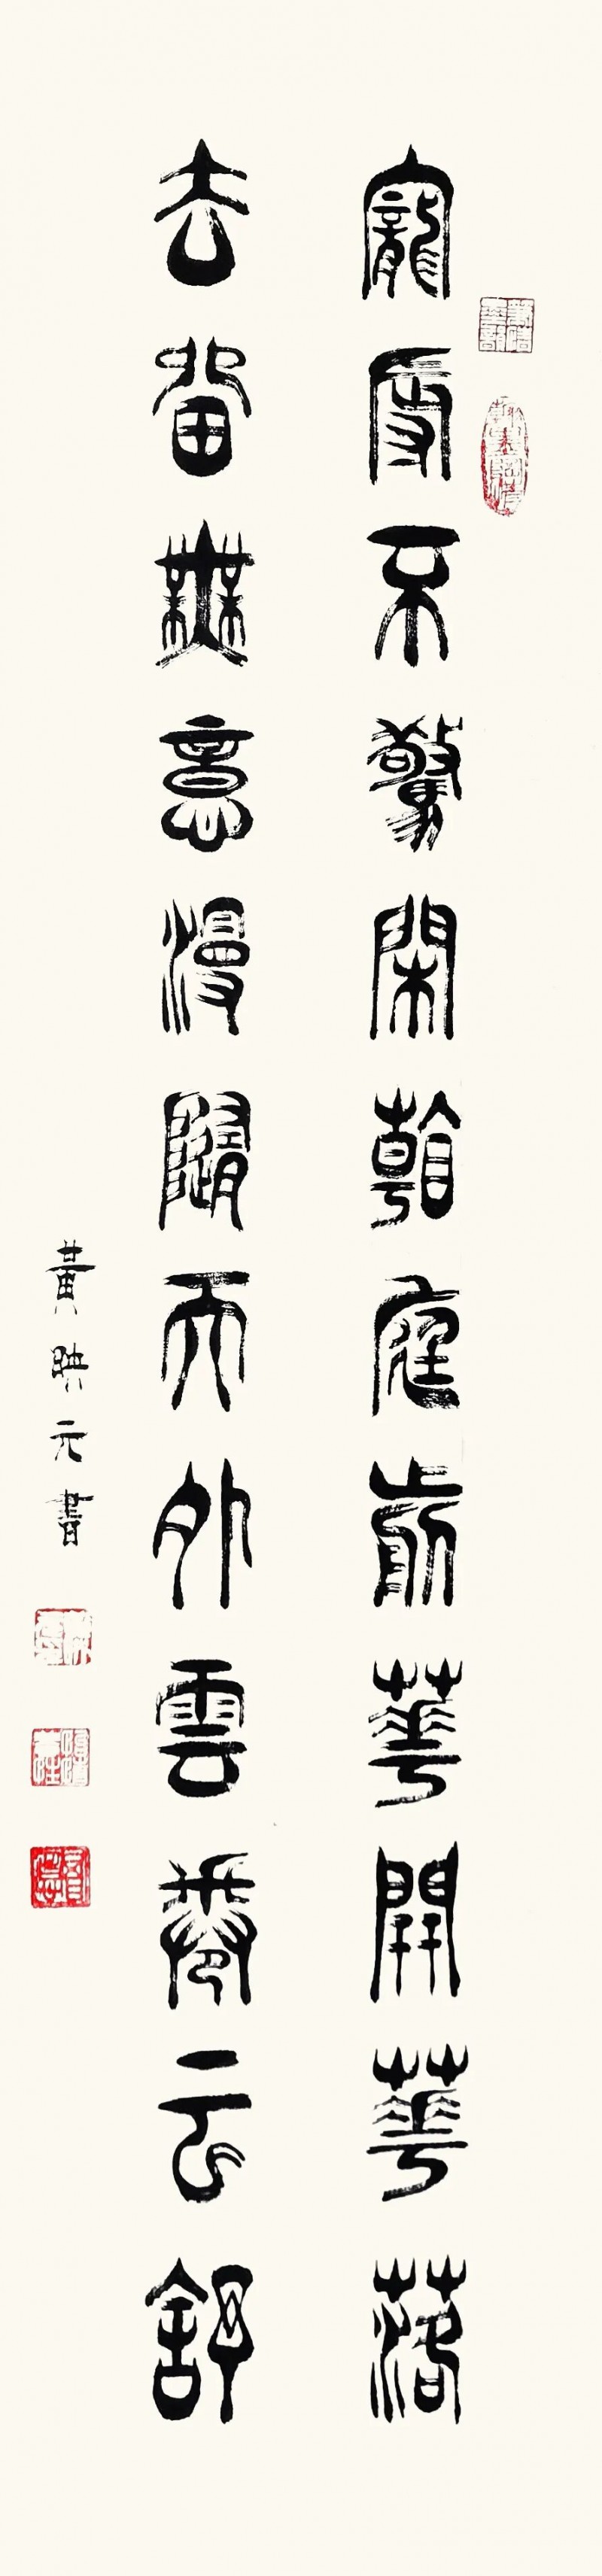 寵辱不驚閑看庭前華開華落
去留無意漫隨天外雲卷云舒
黃映元書